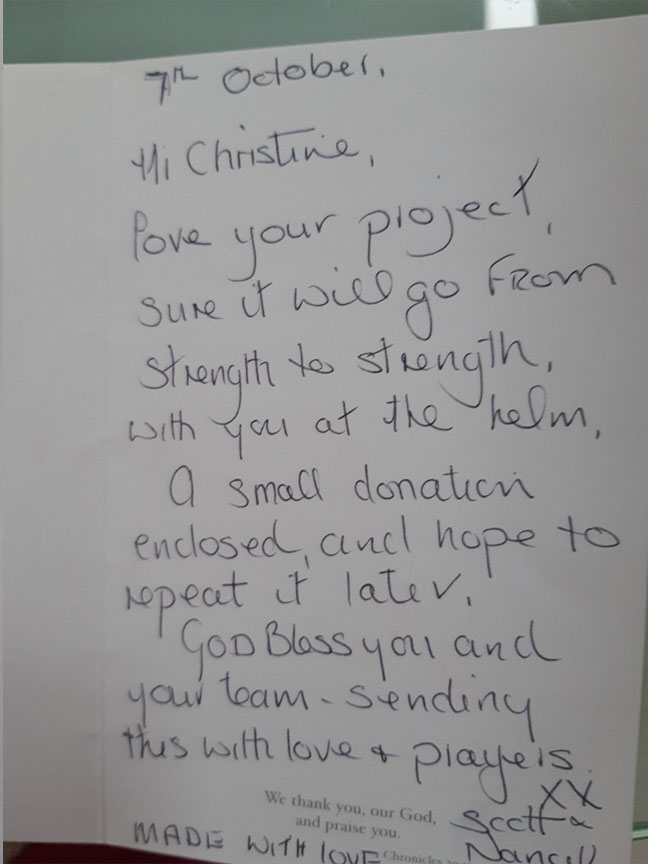 7th October.
Hi Christine,
Love your project,
sure it will go From
strength to strength,
with you at the helm,
A small donation
enclosed, and hope to
repeat it later.
GOD Bless you and
your team - sending
this with love + prayers.
XX
We thank you, our God,
and praise you.
Scott &
MADE WITH LOVE
Chronicles